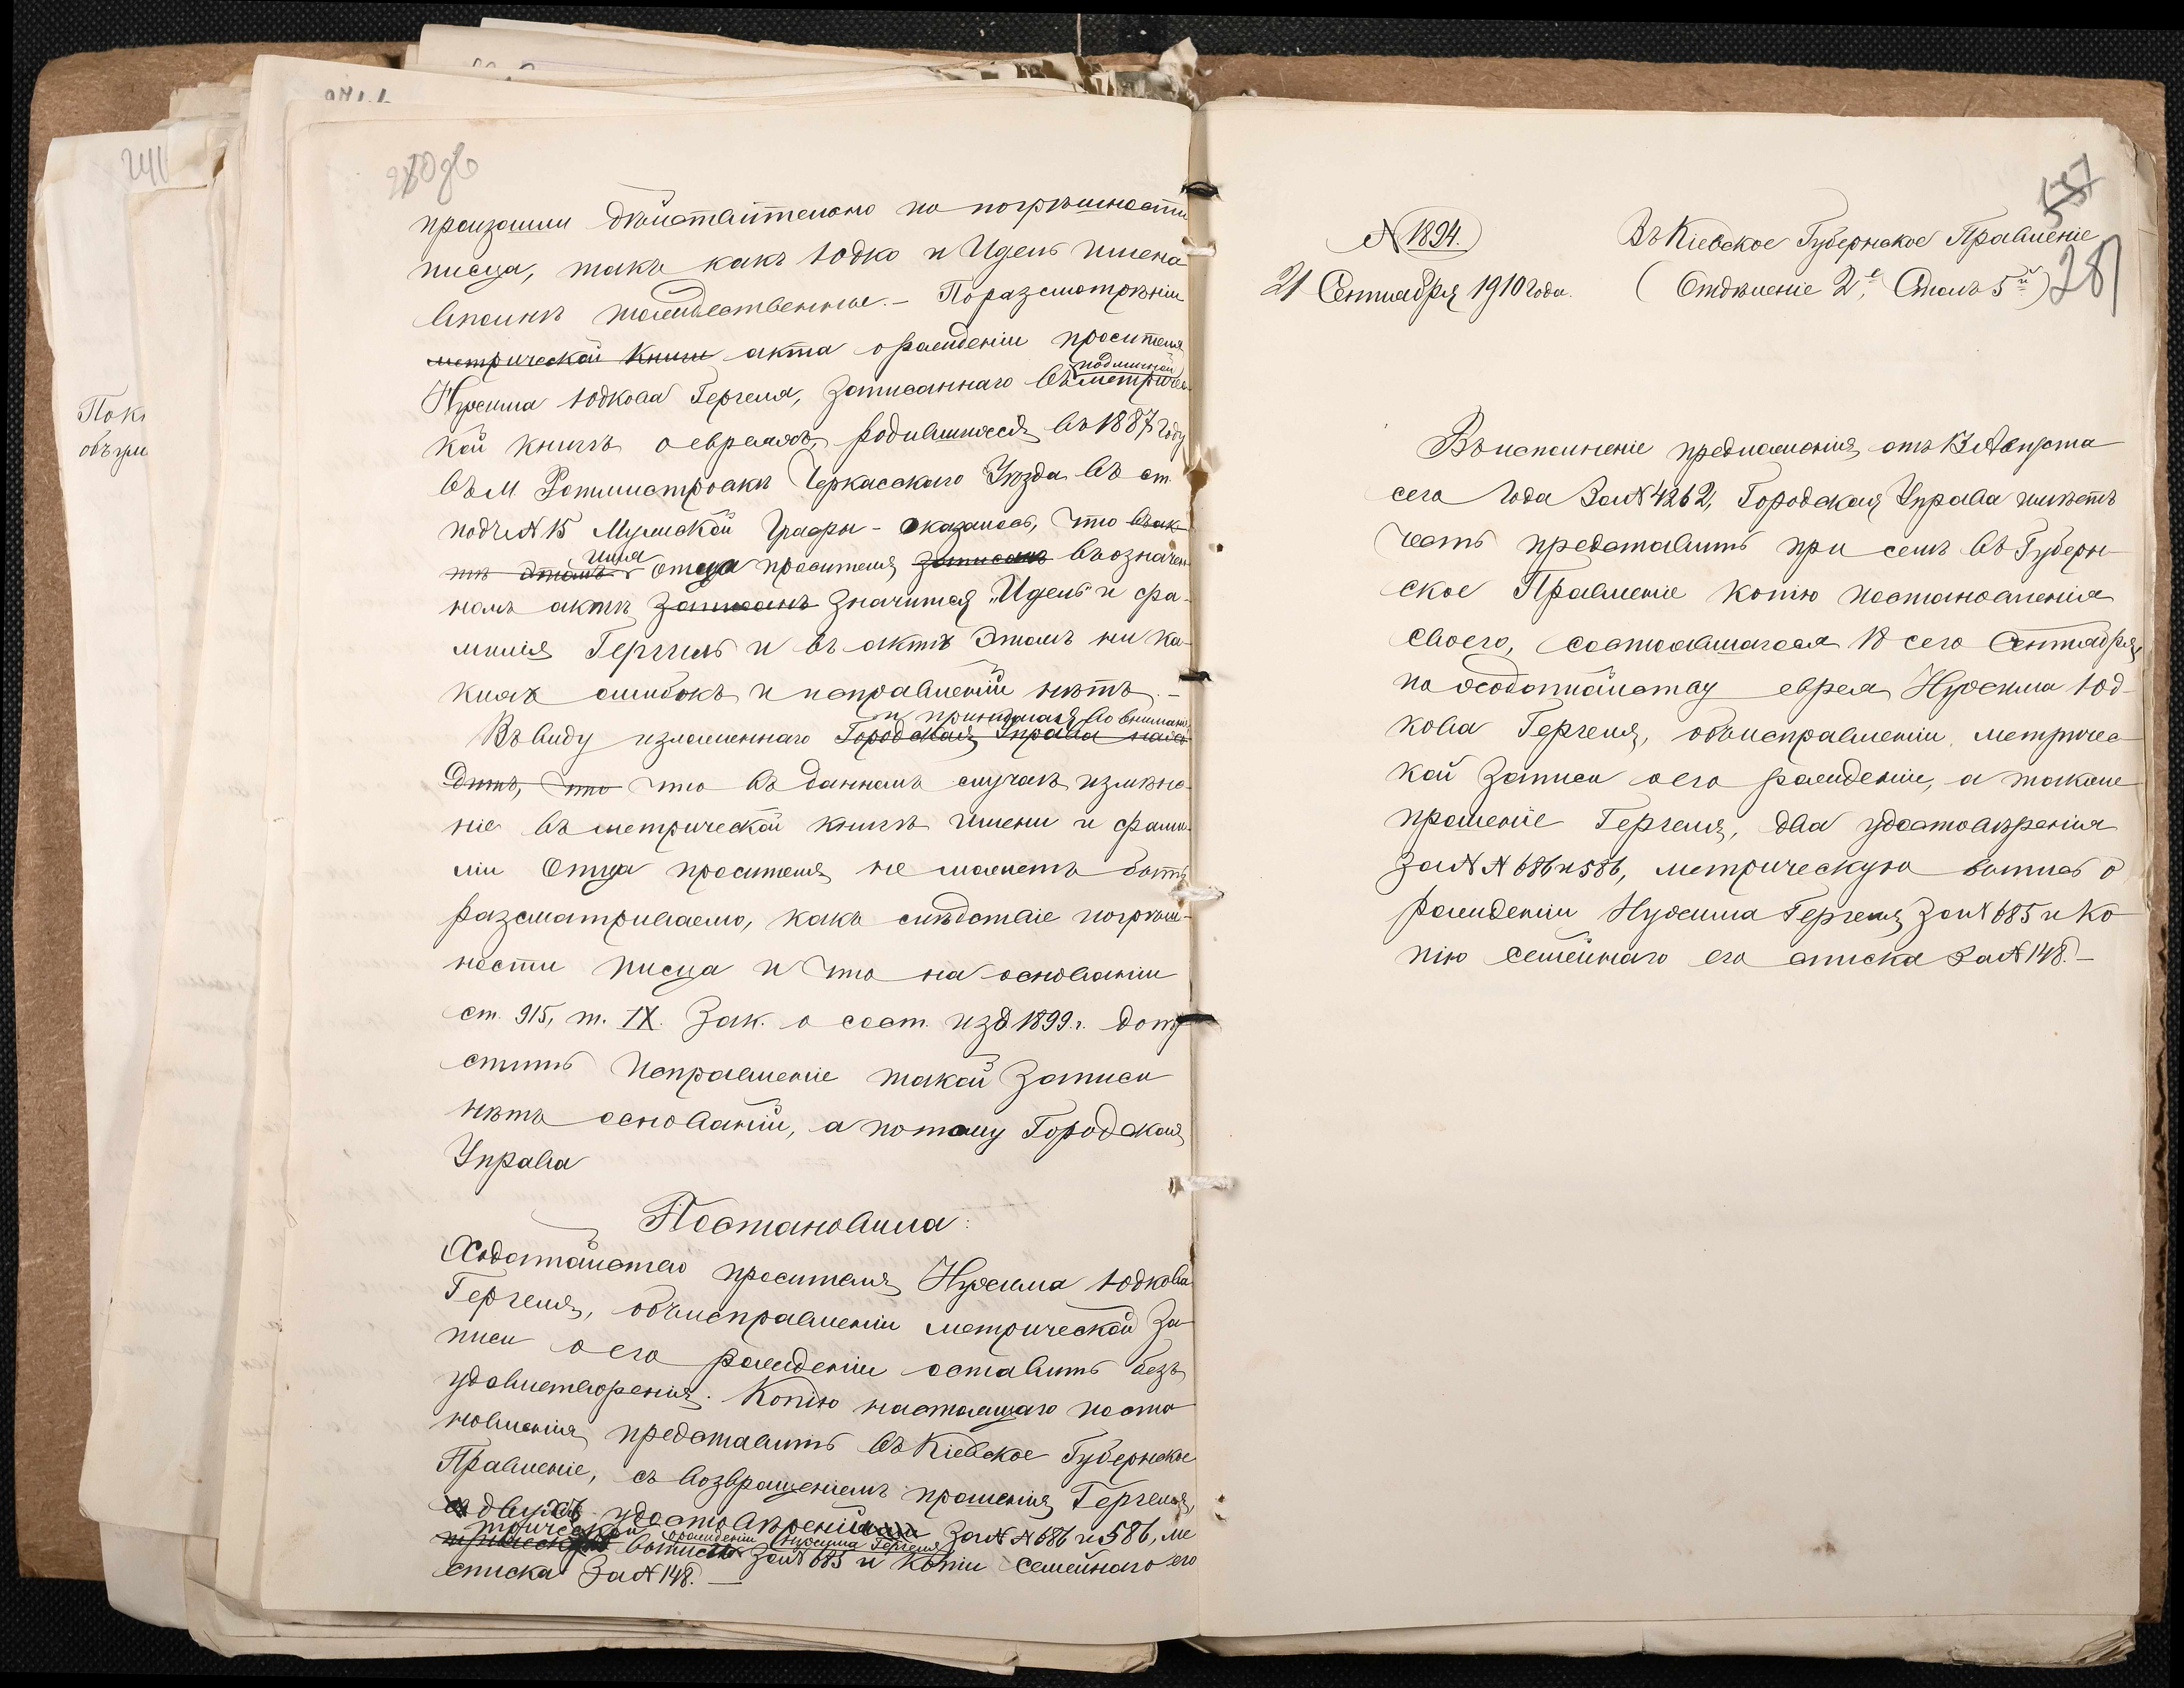 241
Поки
объум
280об
произошли действительно по погрѣшности
писца, такъ какъ Юдко и Идель имена
вполнѣ тождественные. – По разсмотрѣніи
метрической книги акта о рожденіи просителя
подлинной
Нухима Юдкова Гергеля, записаннаго въ метричес-
кой книгѣ о евреяхъ, родившихся въ 1887 году
въ м. Ротмистровкѣ Черкасскаго Уѣзда въ ст.
подъ № 15 Мужской графы – оказалось, что въ ак-
имя
тѣ этомъ отца просителя записанъ въ означен-
номъ актѣ записанъ значится „Идель" и фа-
милія Гергель и въ актѣ этомъ ни ка-
кихъ ошибокъ и исправленій нѣтъ. –
и принимая во вниманіе
Въ виду изложеннаго Городская Управа нахо-
дитъ, что что въ данномъ случаѣ измѣне-
ніе въ метрической книгѣ имени и фами-
ліи Отца просителя не можетъ быть
разсматриваемо, какъ слѣдствіе погрѣш-
ности писца и что на основаніи
ст. 915, т. IX. Зак. о сост. изд 1899 г. допу-
стить исправленіе такой записи
нѣтъ основаній, а потому Городская
Управа
Постановила:
Ходатайство просителя Нухима Юдкова
Гергеля, объ исправленіи метрической за-
писи о его рожденіи оставить безъ
удовлетворенія. Копію настоящаго поста-
новленія представить въ Кіевское Губернское
Правленіе, съ возвращеніемъ прошенія Гергеля,
двухъ удостовѣреній за № № 686 и 586, ме
трической о рожденіи Нухима Гергеля
выписи за № 685 и копіи семейнаго его
списка за № 148. –
557
281
№ 1894.
Въ Кіевское Губернское Правленіе
21 Сентября 1910 года.
(Отдѣленіе 2е, Столъ 5й)
Во исполненіе предписанія отъ 13 Августа
сего года за № 4262, Городская Управа имѣетъ
честь представить при семъ въ Губерн-
ское Правленіе копію постановленія
своего, состоявшагося 18 сего Сентября,
по ходатайству еврея Нухима Юд-
кова Гергеля, объ исправленіи метричес-
кой записи о его рожденіи, а также
прошеніе Гергеля, два удостовѣренія
за № № 686 и 586, метрическую выпись о
рожденіи Нухима Гергеля за № 685 и ко
пію семейнаго его списка за № 148. –